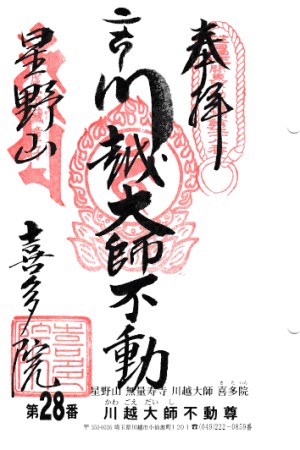 奉拝
川越大師不動
星野山
喜多院
星野山 無量寿寺 川越大師 喜多院
きたいん
第28番
かわごえだいし
川越大師不動尊
埼玉県川越市小仙波町1-20-1 ☎(049)222-0859番